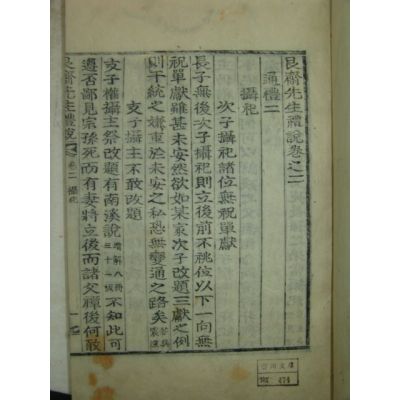 艮齋先生禮說卷之二
通禮二
攝祀
次子攝祀諸位無祝單獻
長子無後次子攝祀則立後前不祧位以下一向無
祝單獻雖甚未安然欲如某家次子改題三獻之例
則干統之嫌重於未安之私恐無變通之路矣
支子攝主不敢改題
支子權攝主祭改題有南溪說增解八冊三十一板不知此可
遵否鄙見宗孫死而有妻將立後而諸父禫後何敢
艮齋先生禮說 卷二 攝祀 一
474